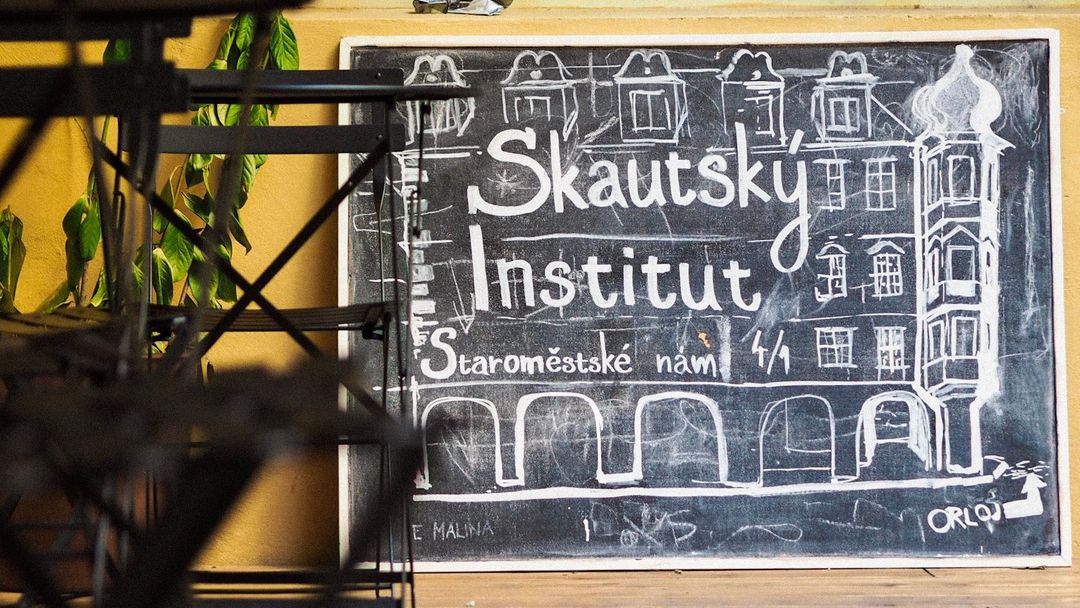 Skautský
Institut
Staroměstské nám 4/1
ORLOJ
E MALINA